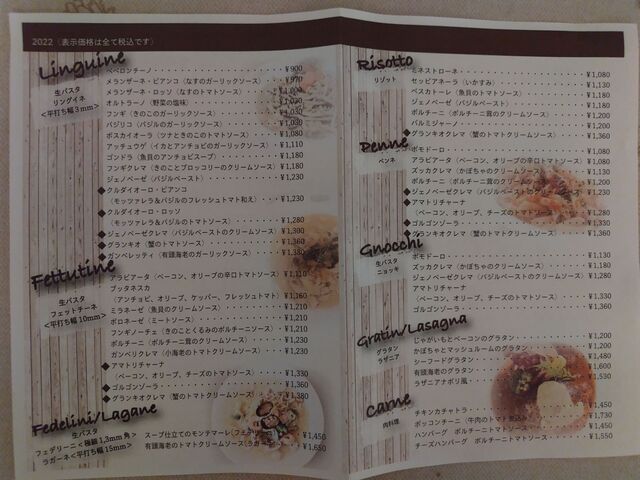 2022（表示価格は全て税込です）
Linguine
生パスタ
リングイネ
<平打ち幅3mm>
ペペロンチーノ ¥900
メランザーネ・ビアンコ（なすのガーリックソース） ¥970
メランザーネ・ロッソ（なすのトマトソース）
オルトラーノ（野菜の塩味） ¥1,030
フンギ（きのこのガーリックソース） ¥1,030
バジリコ（バジルのガーリックソース） ¥1,030
ボスカイオーラ（ツナときのこのトマトソース） ¥1,080
アッチュウゲ（イカとアンチョビのガーリックソース） ¥1,110
ゴンドラ（魚貝のアンチョビスープ） ¥1,180
フンギクレマ（きのことブロッコリーのクリームソース） ¥1,180
ジェノベーゼ（バジルペースト） ¥1,230
◆クルダイオーロ・ビアンコ
（モッツァレラ&バジルのフレッシュトマト和え） ¥1,230
◆クルダイオーロ・ロッソ
（モッツァレラ&バジルのトマトソース） ¥1,280
◆ジェノベーゼクレマ（バジルペーストのクリームソース） ¥1,300
◆グランキオ（蟹のトマトソース） ¥1,360
◆ガンベレッティ（有頭海老のガーリックソース） ¥1,380
Fettutine
生パスタ
フェットチーネ
<平打ち幅10mm>
アラビアータ（ベーコン、オリーブの辛口トマトソース） ¥1,110
プッタネスカ
（アンチョビ、オリーブ、ケッパー、フレッシュトマト） ¥1,160
ミラネーゼ（魚貝のクリームソース） ¥1,210
ボロネーゼ（ミートソース） ¥1,210
フンギノーチェ（きのことくるみのポルチーニソース） ¥1,210
ポルチーニ（ポルチーニ茸のクリームソース） ¥1,230
ガンベリクレマ（小海老のトマトクリームソース） ¥1,230
◆アマトリチャーナ
（ベーコン、オリーブ、チーズのトマトソース） ¥1,330
◆ゴルゴンゾーラ ¥1,360
◆グランキオクレマ（蟹のトマトクリームソース） ¥1,380
Fedelini/Lagane
生パスタ
フェデリーニ<極細1,3mm角>
ラガーネ<平打ち幅15mm>
スープ仕立てのモンテマーレ(フェデリーニ) ¥1,450
有頭海老のトマトクリームソース(ラガーネ) ¥1,650
Risotto
リゾット
ミネストローネ ¥1,080
セッピアネーラ（いかすみ） ¥1,130
ペスカトーレ（魚貝のトマトソース） ¥1,180
ジェノベーゼ（バジルペースト） ¥1,180
ポルチーニ（ポルチーニ茸のクリームソース） ¥1,200
パルミジャーノ ¥1,200
◆グランキオクレマ（蟹のトマトクリームソース） ¥1,360
Penne
ペンネ
ポモドーロ ¥1,080
アラビアータ（ベーコン、オリーブの辛口トマトソース） ¥1,080
ズッカクレマ（かぼちゃのクリームソース） ¥1,130
ポルチーニ（ポルチーニ茸のクリームソース） ¥1,200
◆ジェノベーゼクレマ（バジルペーストのクリームソース） ¥1,230
◆アマトリチャーナ
（ベーコン、オリーブ、チーズのトマトソース） ¥1,280
◆ゴルゴンゾーラ ¥1,330
◆グランキオクレマ（蟹のトマトクリームソース） ¥1,360
Gnocchi
生パスタ
ニョッキ
ポモドーロ ¥1,130
ズッカクレマ（かぼちゃのクリームソース） ¥1,180
ジェノベーゼクレマ（バジルペーストのクリームソース） ¥1,280
アマトリチャーナ
（ベーコン、オリーブ、チーズのトマトソース） ¥1,330
ゴルゴンゾーラ ¥1,360
Gratin/Lasagna
グラタン
ラザニア
じゃがいもとベーコンのグラタン ¥1,200
かぼちゃとマッシュルームのグラタン ¥1,200
シーフードグラタン ¥1,480
有頭海老のグラタン ¥1,600
ラザニアナポリ風 ¥1,530
Carne
肉料理
チキンカチャトラ ¥1,450
ボッコンチーニ（牛肉のトマト煮込み） ¥1,730
ハンバーグ ポルチーニトマトソース ¥1,450
チーズハンバーグ ポルチーニトマトソース ¥1,550